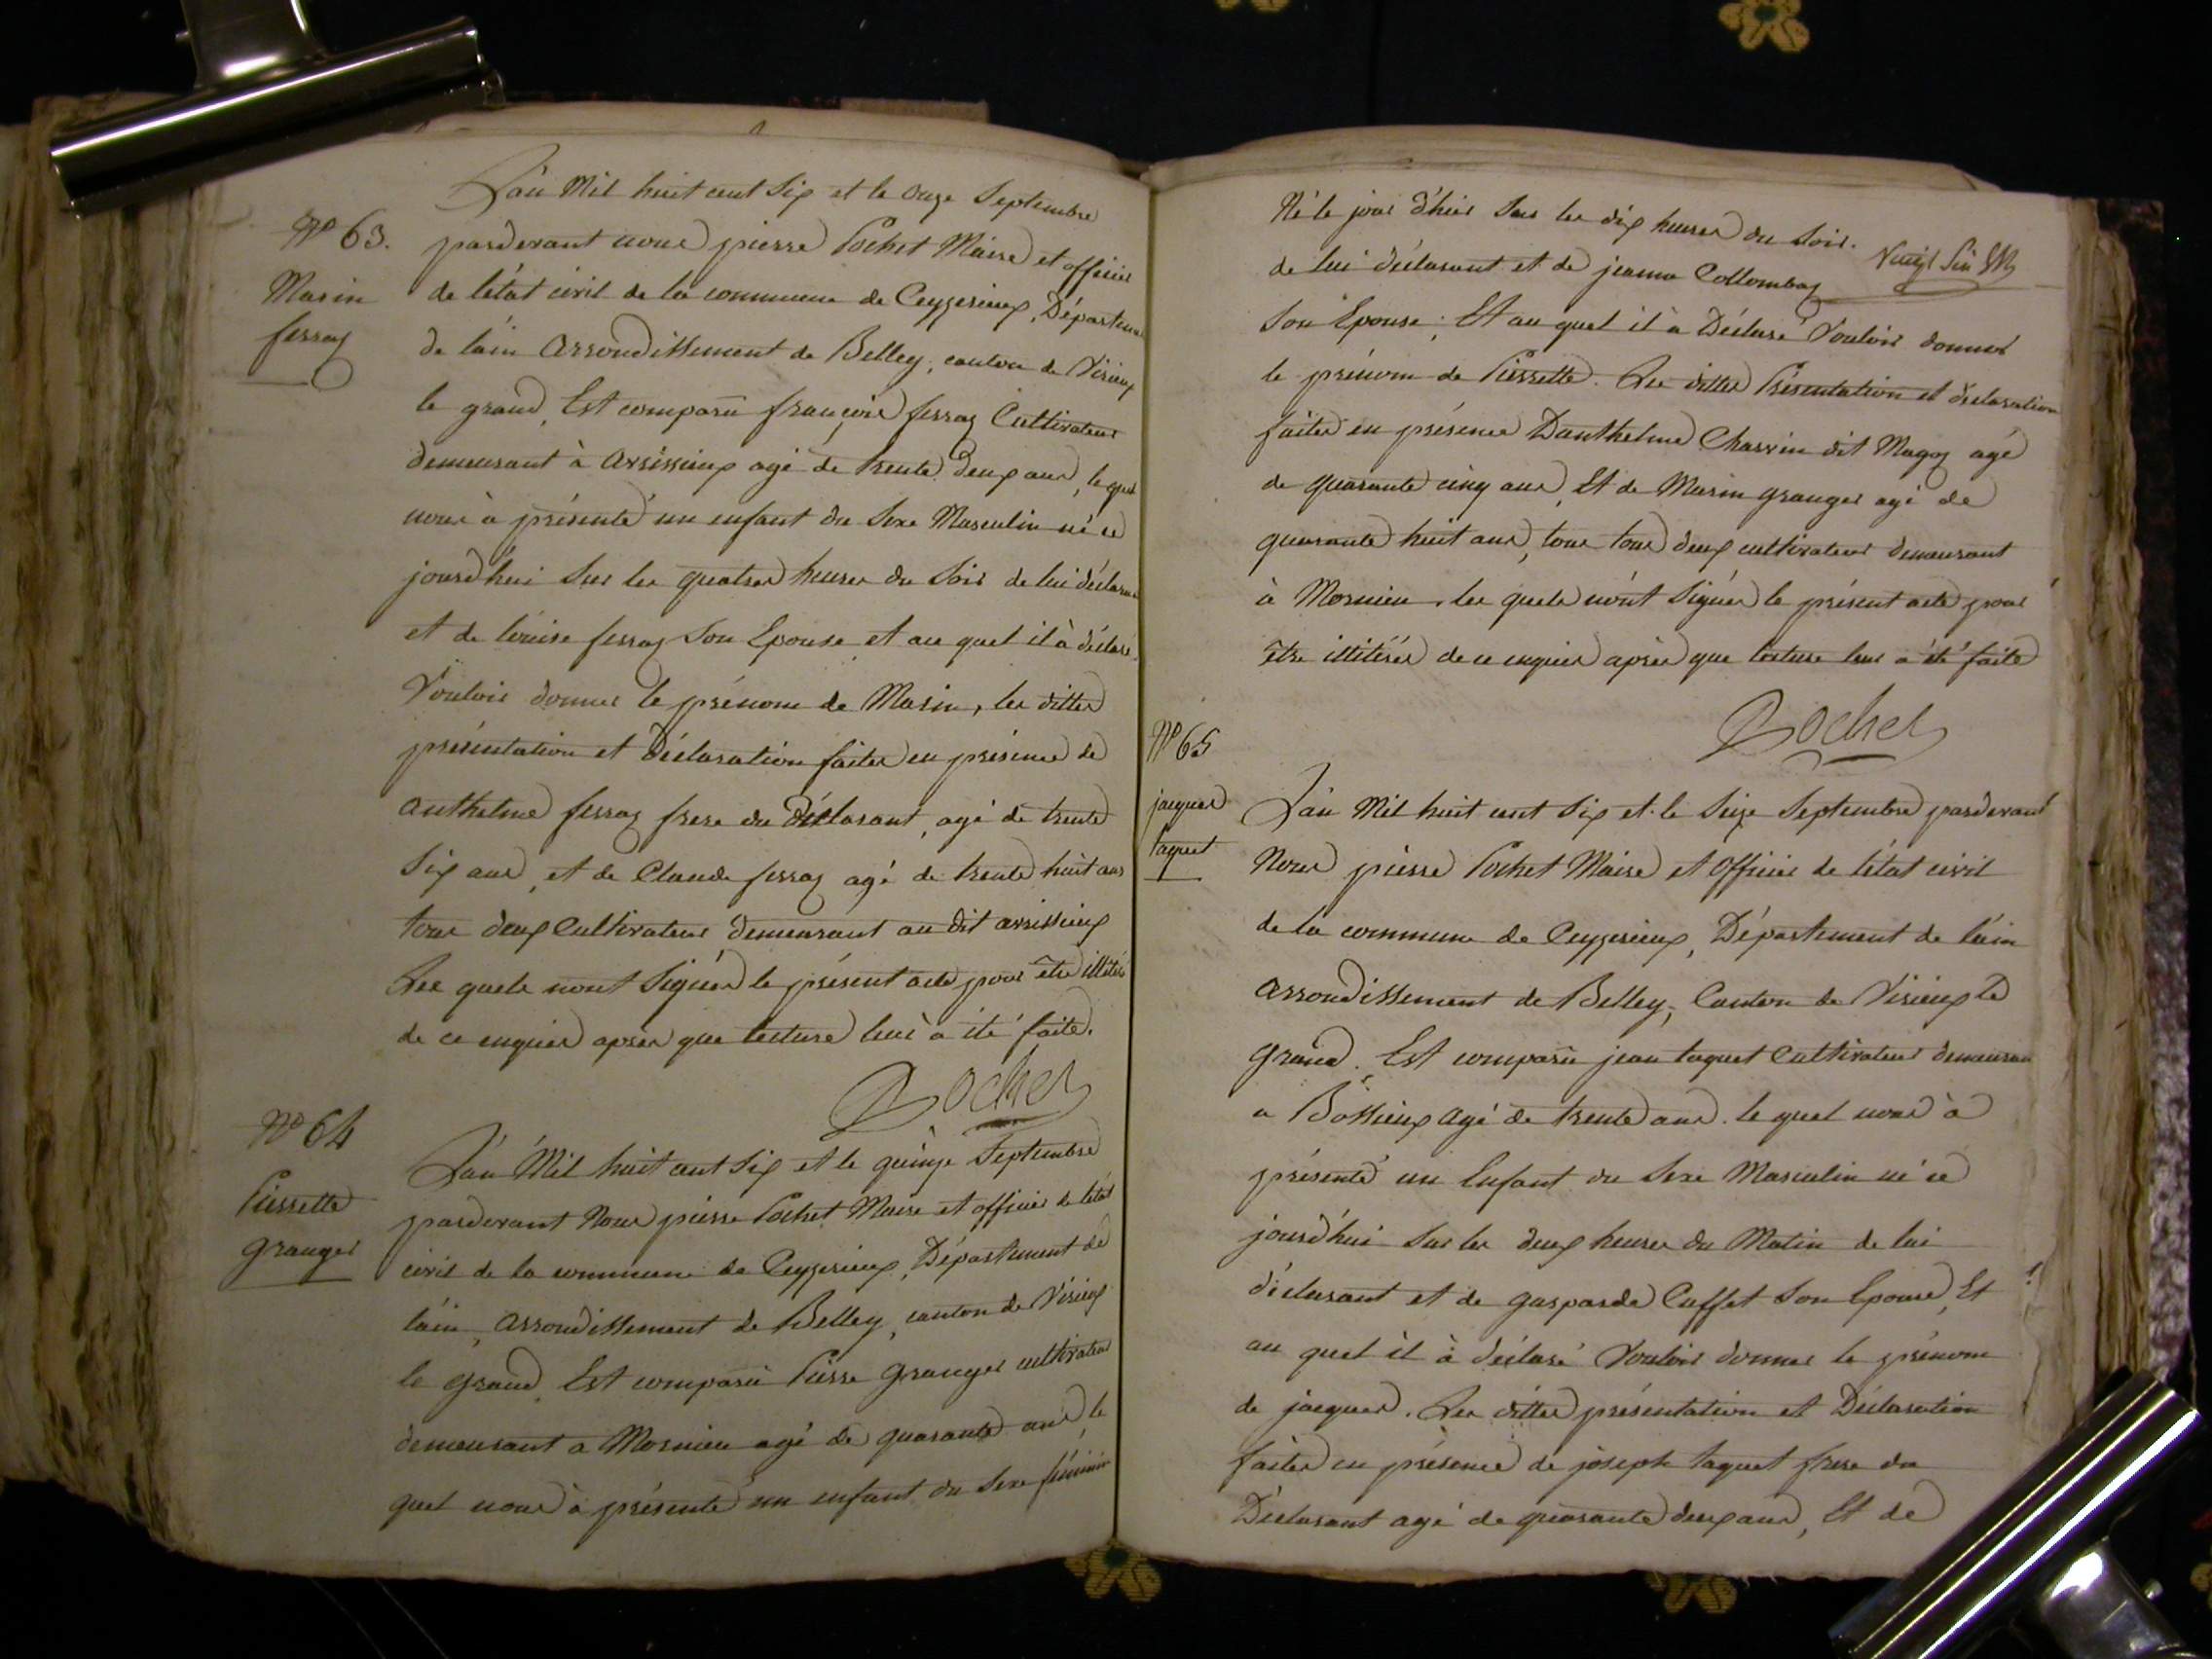 L'an Mil huit cent Six et le onze Septembre
N° 63.
pardevant nous pierre Pochet Maire et officier
Marin
ferraz
de l'état civil de la commune de Ceyzerieux, Départem
de l'ain arrondissement de Belley, canton de Virieux
le grand, Est comparu françois ferraz Cultivateur
demeurant à arvissieux agé de trente deux ans, le quel
nous à présenté un enfant du Sexe Masculin né ce
jourd'hui Sur les quatres heures du Soir de lui déclarant
et de louise ferraz Son Epouse et au quel il à déclaré
Vouloir donner le prénom de Marin, les dittes
présentation et Déclaration faites en présence de
anthelme ferraz frere du déclarant, agé de trente
Six ans, et de Claude ferraz agé de trente huit ans
tous deux Cultivateurs demeurant au dit arvissieux
Les quels n'ont Signés le présent acte pour être illitérés
de ce enquis après que lecture leur à été faite.
Pochet
N° 64
Pierrette
granger
L'an Mil huit cent Six et le quinze Septembre
pardevant Nous pierre Pochet Maire et officier de l'état
civil de la commune de Ceyzerieux, Département de
l'ain, arrondissement de Belley, canton de Virieux
le grand, Est comparu Pierre granger cultivateur
demeurant a Mornieu agé de quarante ans, le
quel nous à présenté un enfant du Sexe féminin
Né le jour d'hier Sur les dix heures du Soir.
de lui déclarant et de jeanne Collombaz
Son Epouse; Et au quel il à Déclaré Vouloir donner
le prénom de Pierrette. Les dittes Présentation et déclaration
faites en présence D'anthelme Charvin dit Magoz agé
de quarante cinq ans, Et de Marin granger agé de
quarante huit ans, tous tous deux cultivateurs demeurant
à Mornieu, les quels n'ont Signés le présent acte pour
être illitérés de ce enquis après que lecture leur a été faite
Pochet
N° 65
jacques
taquet
L'an Mil huit cent Six et le Seize Septembre pardevant
Nous pierre Pochet Maire et Officier de l'état civil
de la commune de Ceyzerieux, Département de l'ain
arrondissement de Belley, Canton de Virieux le
grand. Est comparu jean taquet Cultivateur demeuran
a Bossieux agé de trente ans. le quel nous à
présenté un Enfant du Sexe Masculin né ce
jourd'hui Sur les deux heures du Matin de lui
déclarant et de gasparde Cuffet Son Epouse, Et
au quel il à déclaré Vouloir donner le prénom
de jacques. Les dittes présentation et Déclaration
faites en présence de joseph taquet frere du
Déclarant agé de quarante deux ans, Et de